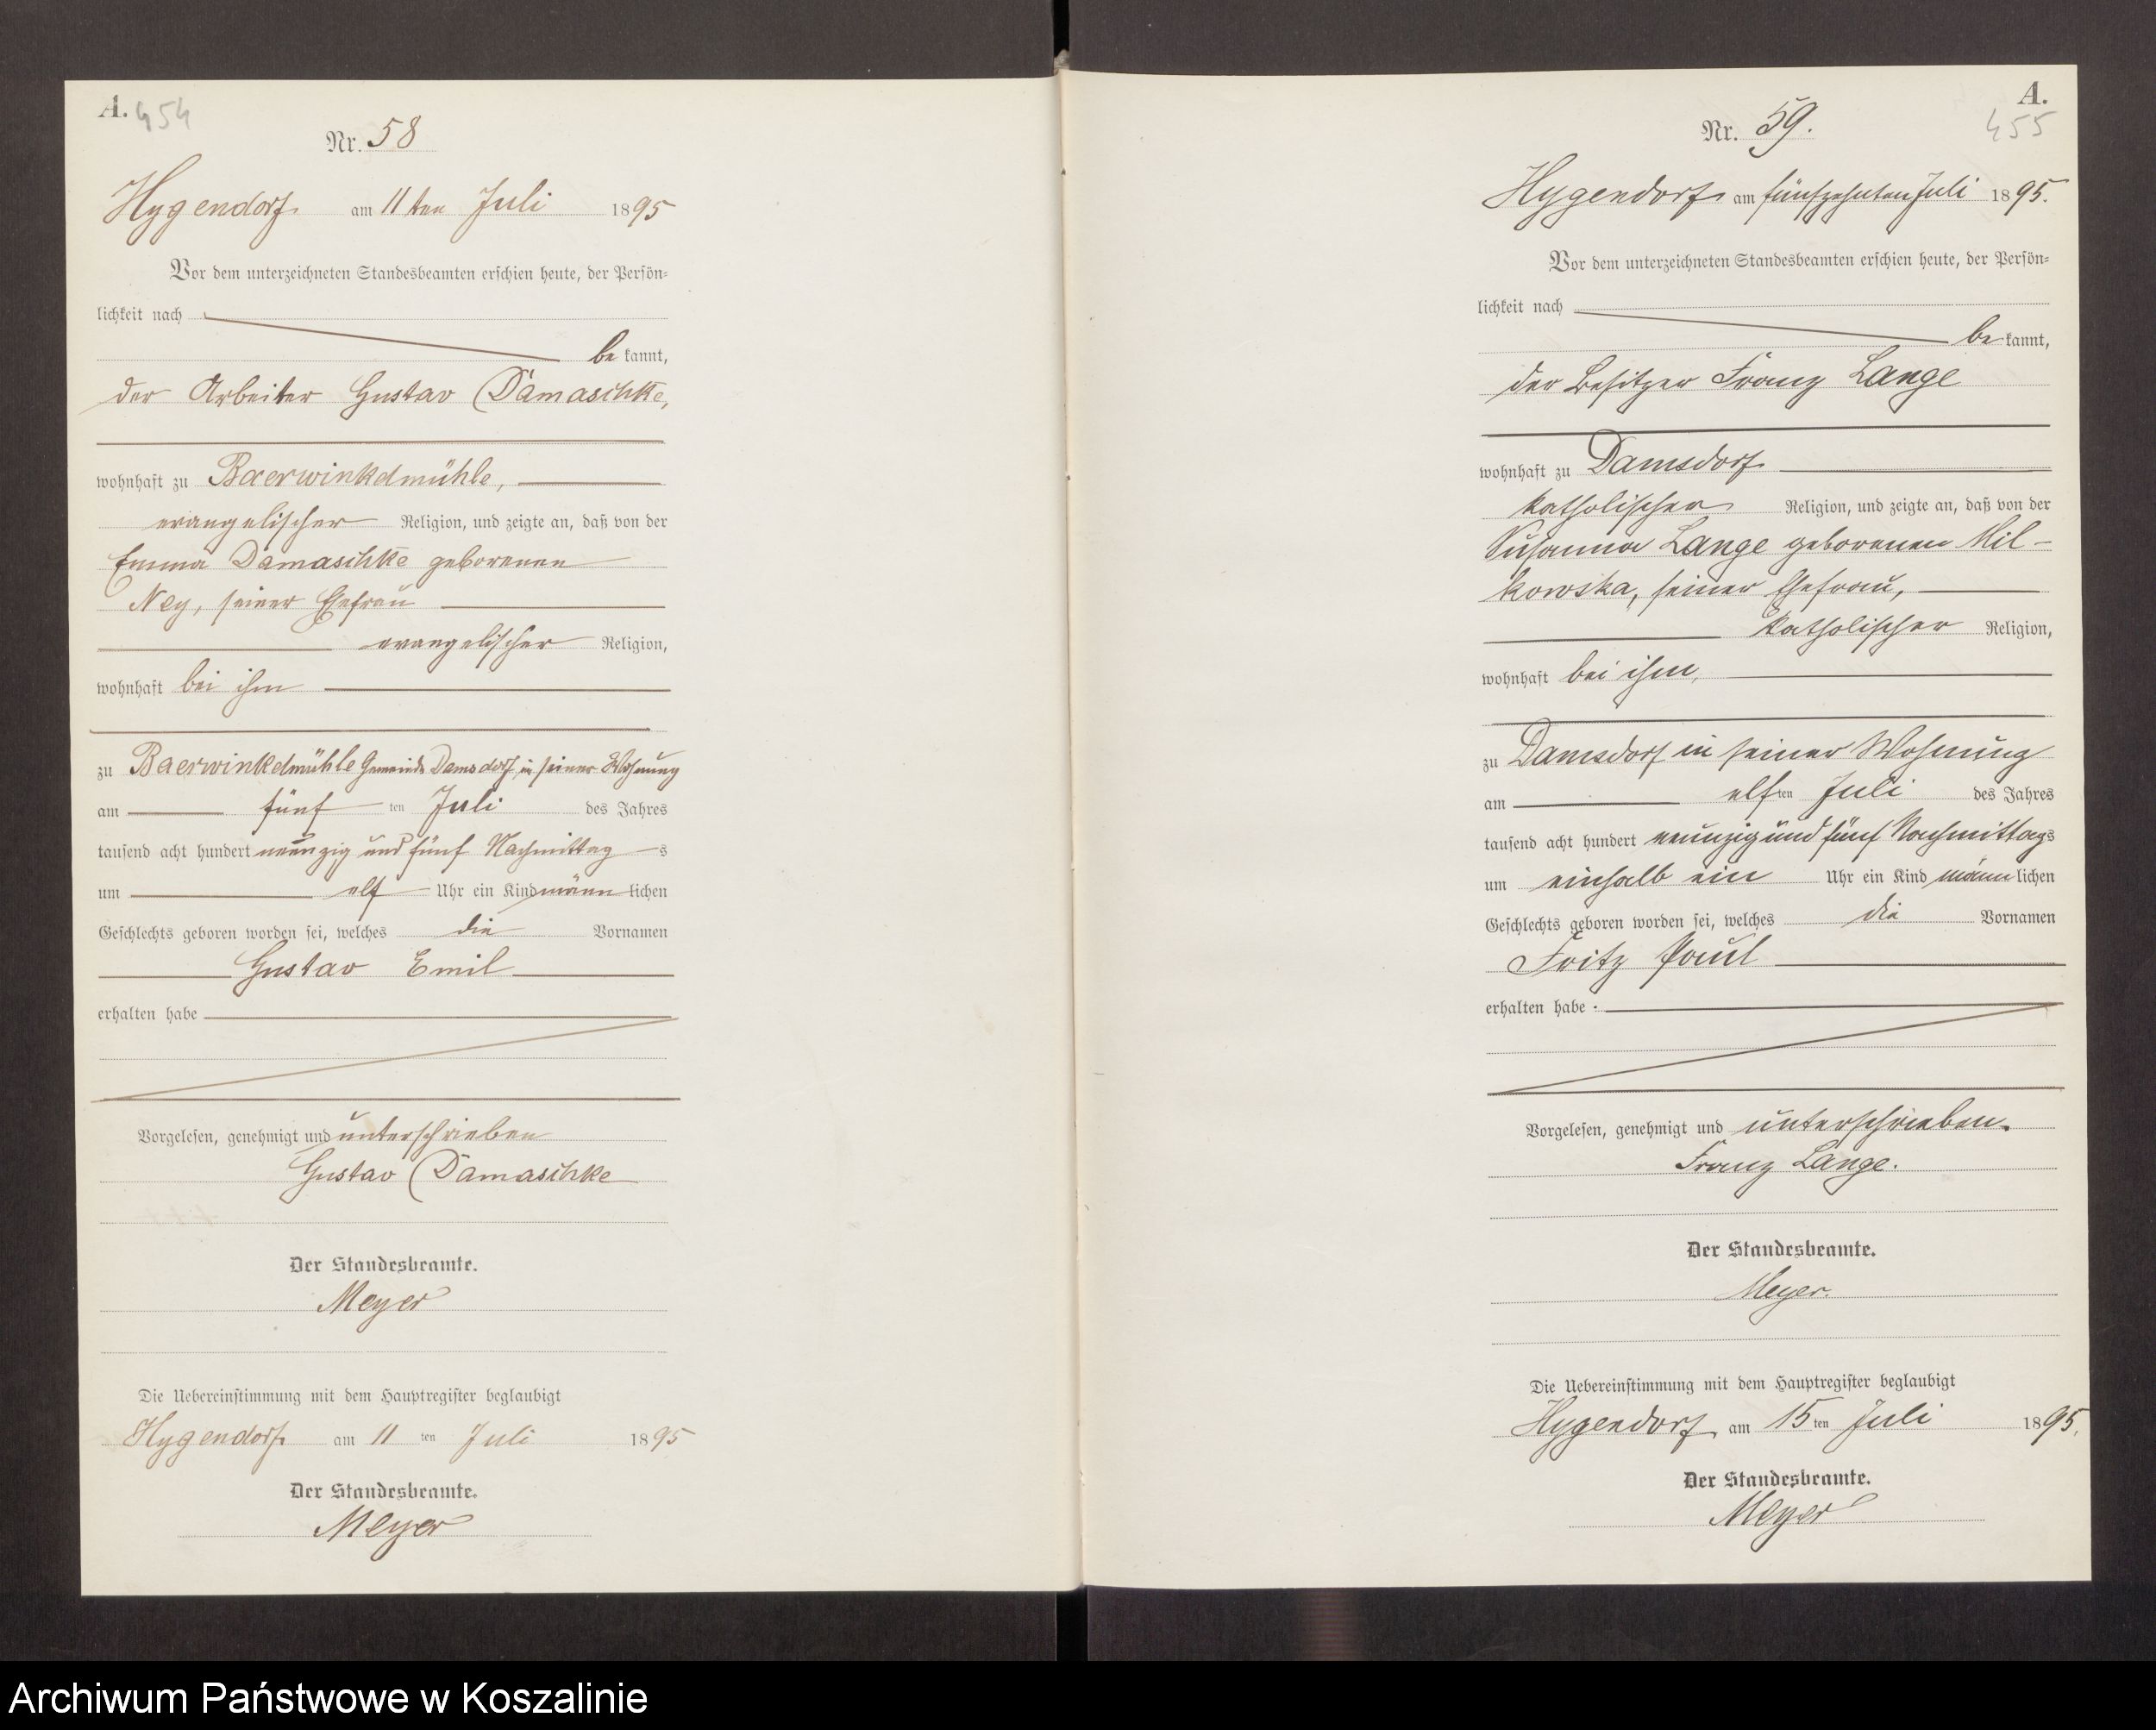 A. 454
Nr. 58
Hygendorf am 11ten Juli 1895
Vor dem unterzeichneten Standesbeamten erschien heute, der Persön=
lichkeit nach
be kannt,
der Arbeiter Gustav Damaschke,
wohnhaft zu Baerwinkelmühle,
evangelischer Religion, und zeigte an, daß von der
Emma Damaschke geborenen
Ney, seiner Ehefrau
evangelischer Religion,
wohnhaft bei ihm
zu Baerwinkelmühle Gemeinde Damsdorf in seiner Wohnung
am fünf ten Juli des Jahres
tausend acht hundert neunzig und fünf Nachmittag s
um elf Uhr ein Kind männ lichen
Geschlechts geboren worden sei, welches die Vornamen
Gustav Emil
erhalten habe
Vorgelesen, genehmigt und unterschrieben
Gustav Damaschke
Der Standesbeamte.
Meyer
Die Uebereinstimmung mit dem Hauptregister beglaubigt
Hygendorf am 11 ten Juli 1895
Der Standesbeamte.
Meyer
A.
455
Nr. 59.
Hygendorf am fünfzehnten Juli 1895.
Vor dem unterzeichneten Standesbeamten erschien heute, der Persön=
lichkeit nach
be kannt,
der Besitzer Franz Lange
wohnhaft zu Damsdorf
katholischer Religion, und zeigte an, daß von der
Susanna Lange geborenen Mil-
kowska, seiner Ehefrau,
katholischer Religion,
wohnhaft bei ihm,
zu Damsdorf in seiner Wohnung
am elf ten Juli des Jahres
tausend acht hundert neunzig und fünf Nachmittags
um einhalb ein Uhr ein Kind männ lichen
Geschlechts geboren worden sei, welches die Vornamen
Fritz Paul
erhalten habe.
Vorgelesen, genehmigt und unterschrieben.
Franz Lange.
Der Standesbeamte.
Meyer.
Die Uebereinstimmung mit dem Hauptregister beglaubigt
Hygendorf am 15ten Juli 1895.
Der Standesbeamte.
Meyer
Archiwum Państwowe w Koszalinie